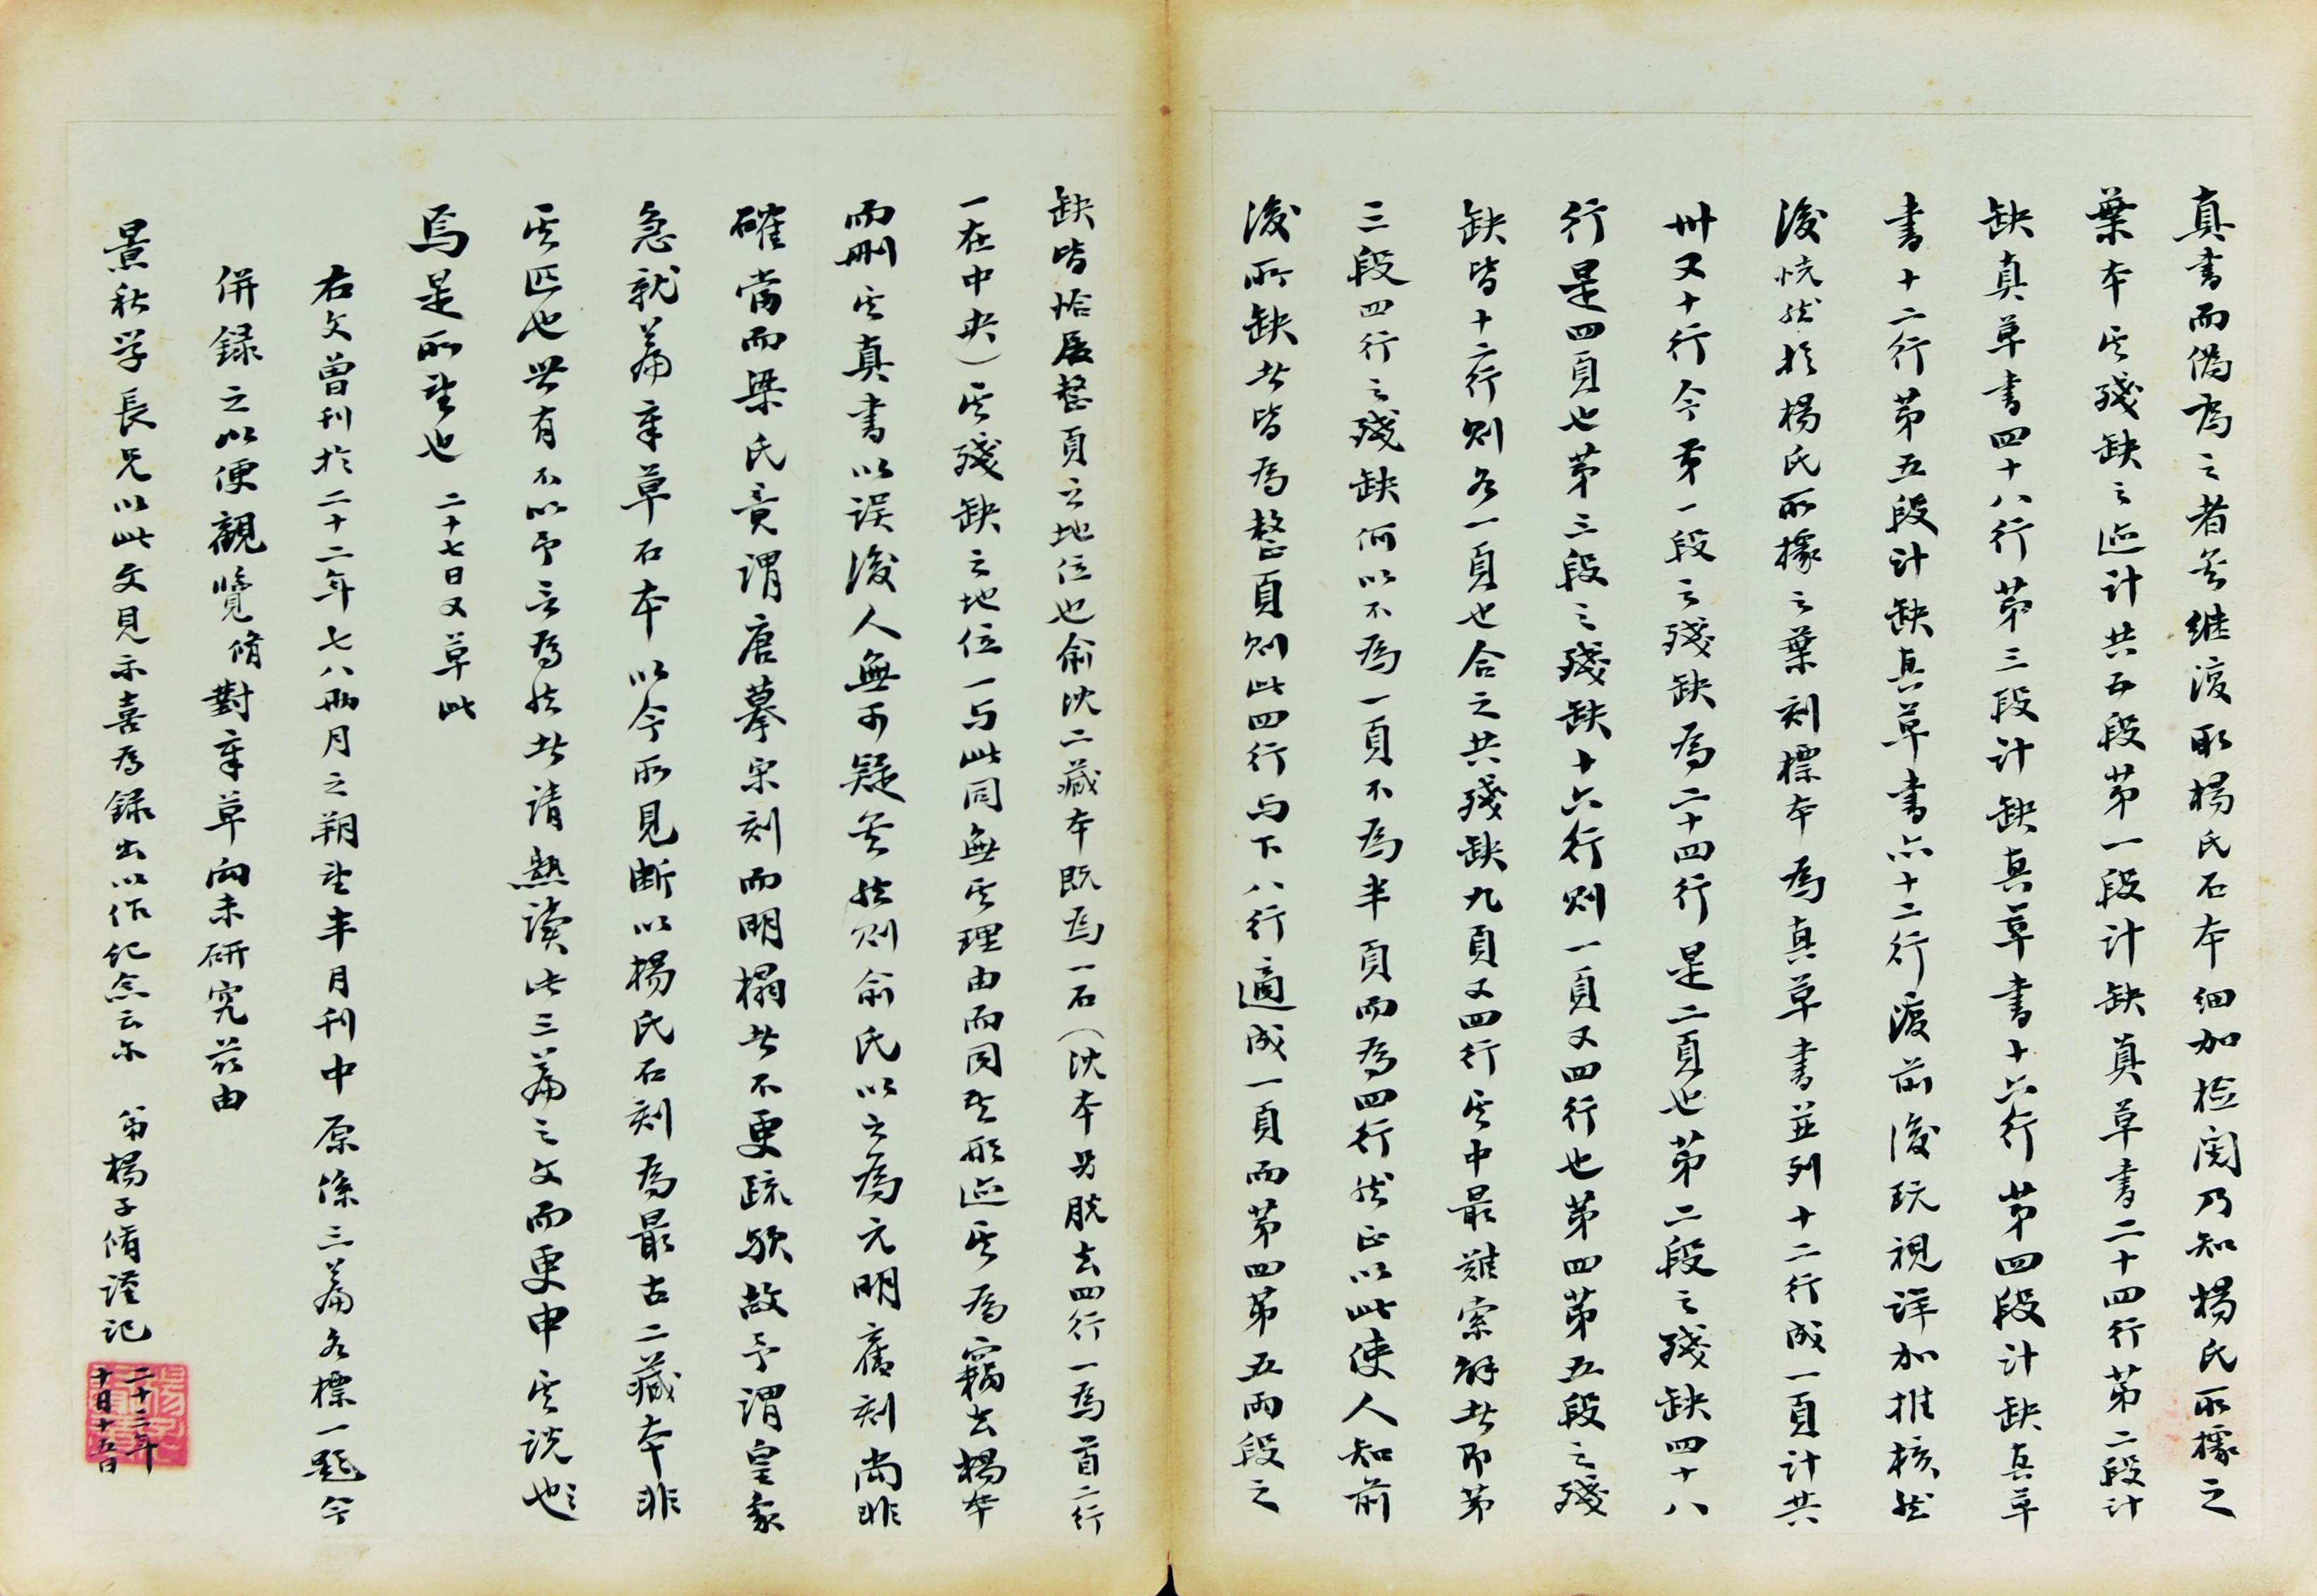 真書而偽為之者矣繼復取楊氏石本細加檢閱乃知楊氏所據之
葉本其殘缺之迹計共五段第一段計缺真草書二十四行第二段計
缺真草書四十八行第三段計缺真草書十六行第四段計缺真草
書十二行第五段計缺真草書亦十二行復前後玩視詳加推核然
後恍然於楊氏所據之葉刻標本為真草書並列十二行成一頁計共
卅又十行今第一段之殘缺為二十四行是二頁也第二段之殘缺四十八
行是四頁也第三段之殘缺十六行則一頁又四行也第四第五段之殘
缺皆十二行則各一頁也合之共殘缺九頁又四行其中最難索解者即第
三段四行之殘缺何以不為一頁不為半頁而為四行然正以此使人知前
後所缺者皆為整頁則此四行与下八行適成一頁而第四第五兩段之
缺皆恰居整頁之地位也俞沈二藏本既為一石(沈本另脫去四行一為首二行
一在中央)其殘缺之地位一与此同無其理由而同其形迹其為竊去楊本
而刪其真書以誤後人無可疑矣然則俞氏以之為元明舊刻尚非
確當而梁氏竟謂唐摹宋刻而明榻者不更疏歟故予謂皇象
急就篇章草石本以今所見斷以楊氏石刻為最古二藏本非
其匹也世有不以予言為然者請熟讀此三篇之文而更申其說也
焉是所望也 二十七日又草此
右文曾刊於二十二年七八兩月之朔望半月刊中原係三篇各標一題今
併錄之以便觀覽脩對章草向未研究茲由
景秋学長兄以此文見示喜為錄出以作紀念云尔 弟楊子脩謹記
二十三年
十月十五日